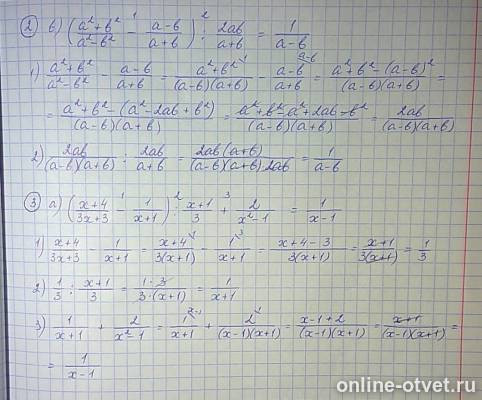 ② б) ((a²+b²)/(a²-b²) - (a-b)/(a+b)) : 2ab/(a+b) = 1/(a-b)
1) (a²+b²)/(a²-b²) - (a-b)/(a+b) = (a²+b²)/((a-b)(a+b)) - (a-b)/(a+b) = (a²+b²-(a-b)²)/((a-b)(a+b)) =
= (a²+b²-(a²-2ab+b²))/((a-b)(a+b)) = (a²+b²-a²+2ab-b²)/((a-b)(a+b)) = 2ab/((a-b)(a+b))
2) 2ab/((a-b)(a+b)) : 2ab/(a+b) = 2ab(a+b)/((a-b)(a+b)·2ab) = 1/(a-b)
③ а) ((x+4)/(3x+3) - 1/(x+1)) : (x+1)/3 + 2/(x²-1) = 1/(x-1)
1) (x+4)/(3x+3) - 1/(x+1) = (x+4)/(3(x+1)) - 1/(x+1) = (x+4-3)/(3(x+1)) = (x+1)/(3(x+1)) = 1/3
2) 1/3 : (x+1)/3 = (1·3)/(3·(x+1)) = 1/(x+1)
3) 1/(x+1) + 2/(x²-1) = 1/(x+1) + 2/((x-1)(x+1)) = (x-1+2)/((x-1)(x+1)) = (x+1)/((x-1)(x+1)) =
= 1/(x-1)
online-otvet.ru